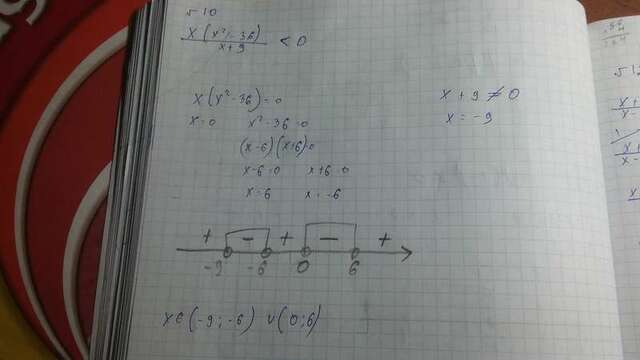 510
x(x²-36)
x+9 < 0
x(x²-36)=0
x=0 x²-36=0
(x-6)(x+6)=0
x-6=0 x+6=0
x=6 x=-6
x+9≠0
x=-9
+ - + - +
-9 -6 0 6
x∈(-9;-6) ∪ (0;6)